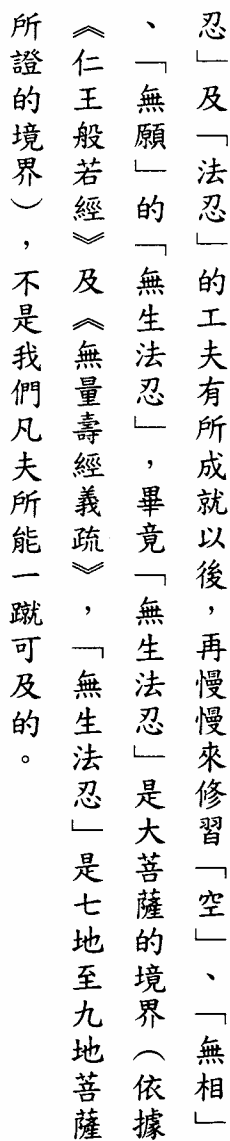 忍」及「法忍」的工夫有所成就以後，再慢慢來修習「空」、「無相」
、「無願」的「無生法忍」，畢竟「無生法忍」是大菩薩的境界（依據
《仁王般若經》及《無量壽經義疏》，「無生法忍」是七地至九地菩薩
所證的境界），不是我們凡夫所能一蹴可及的。